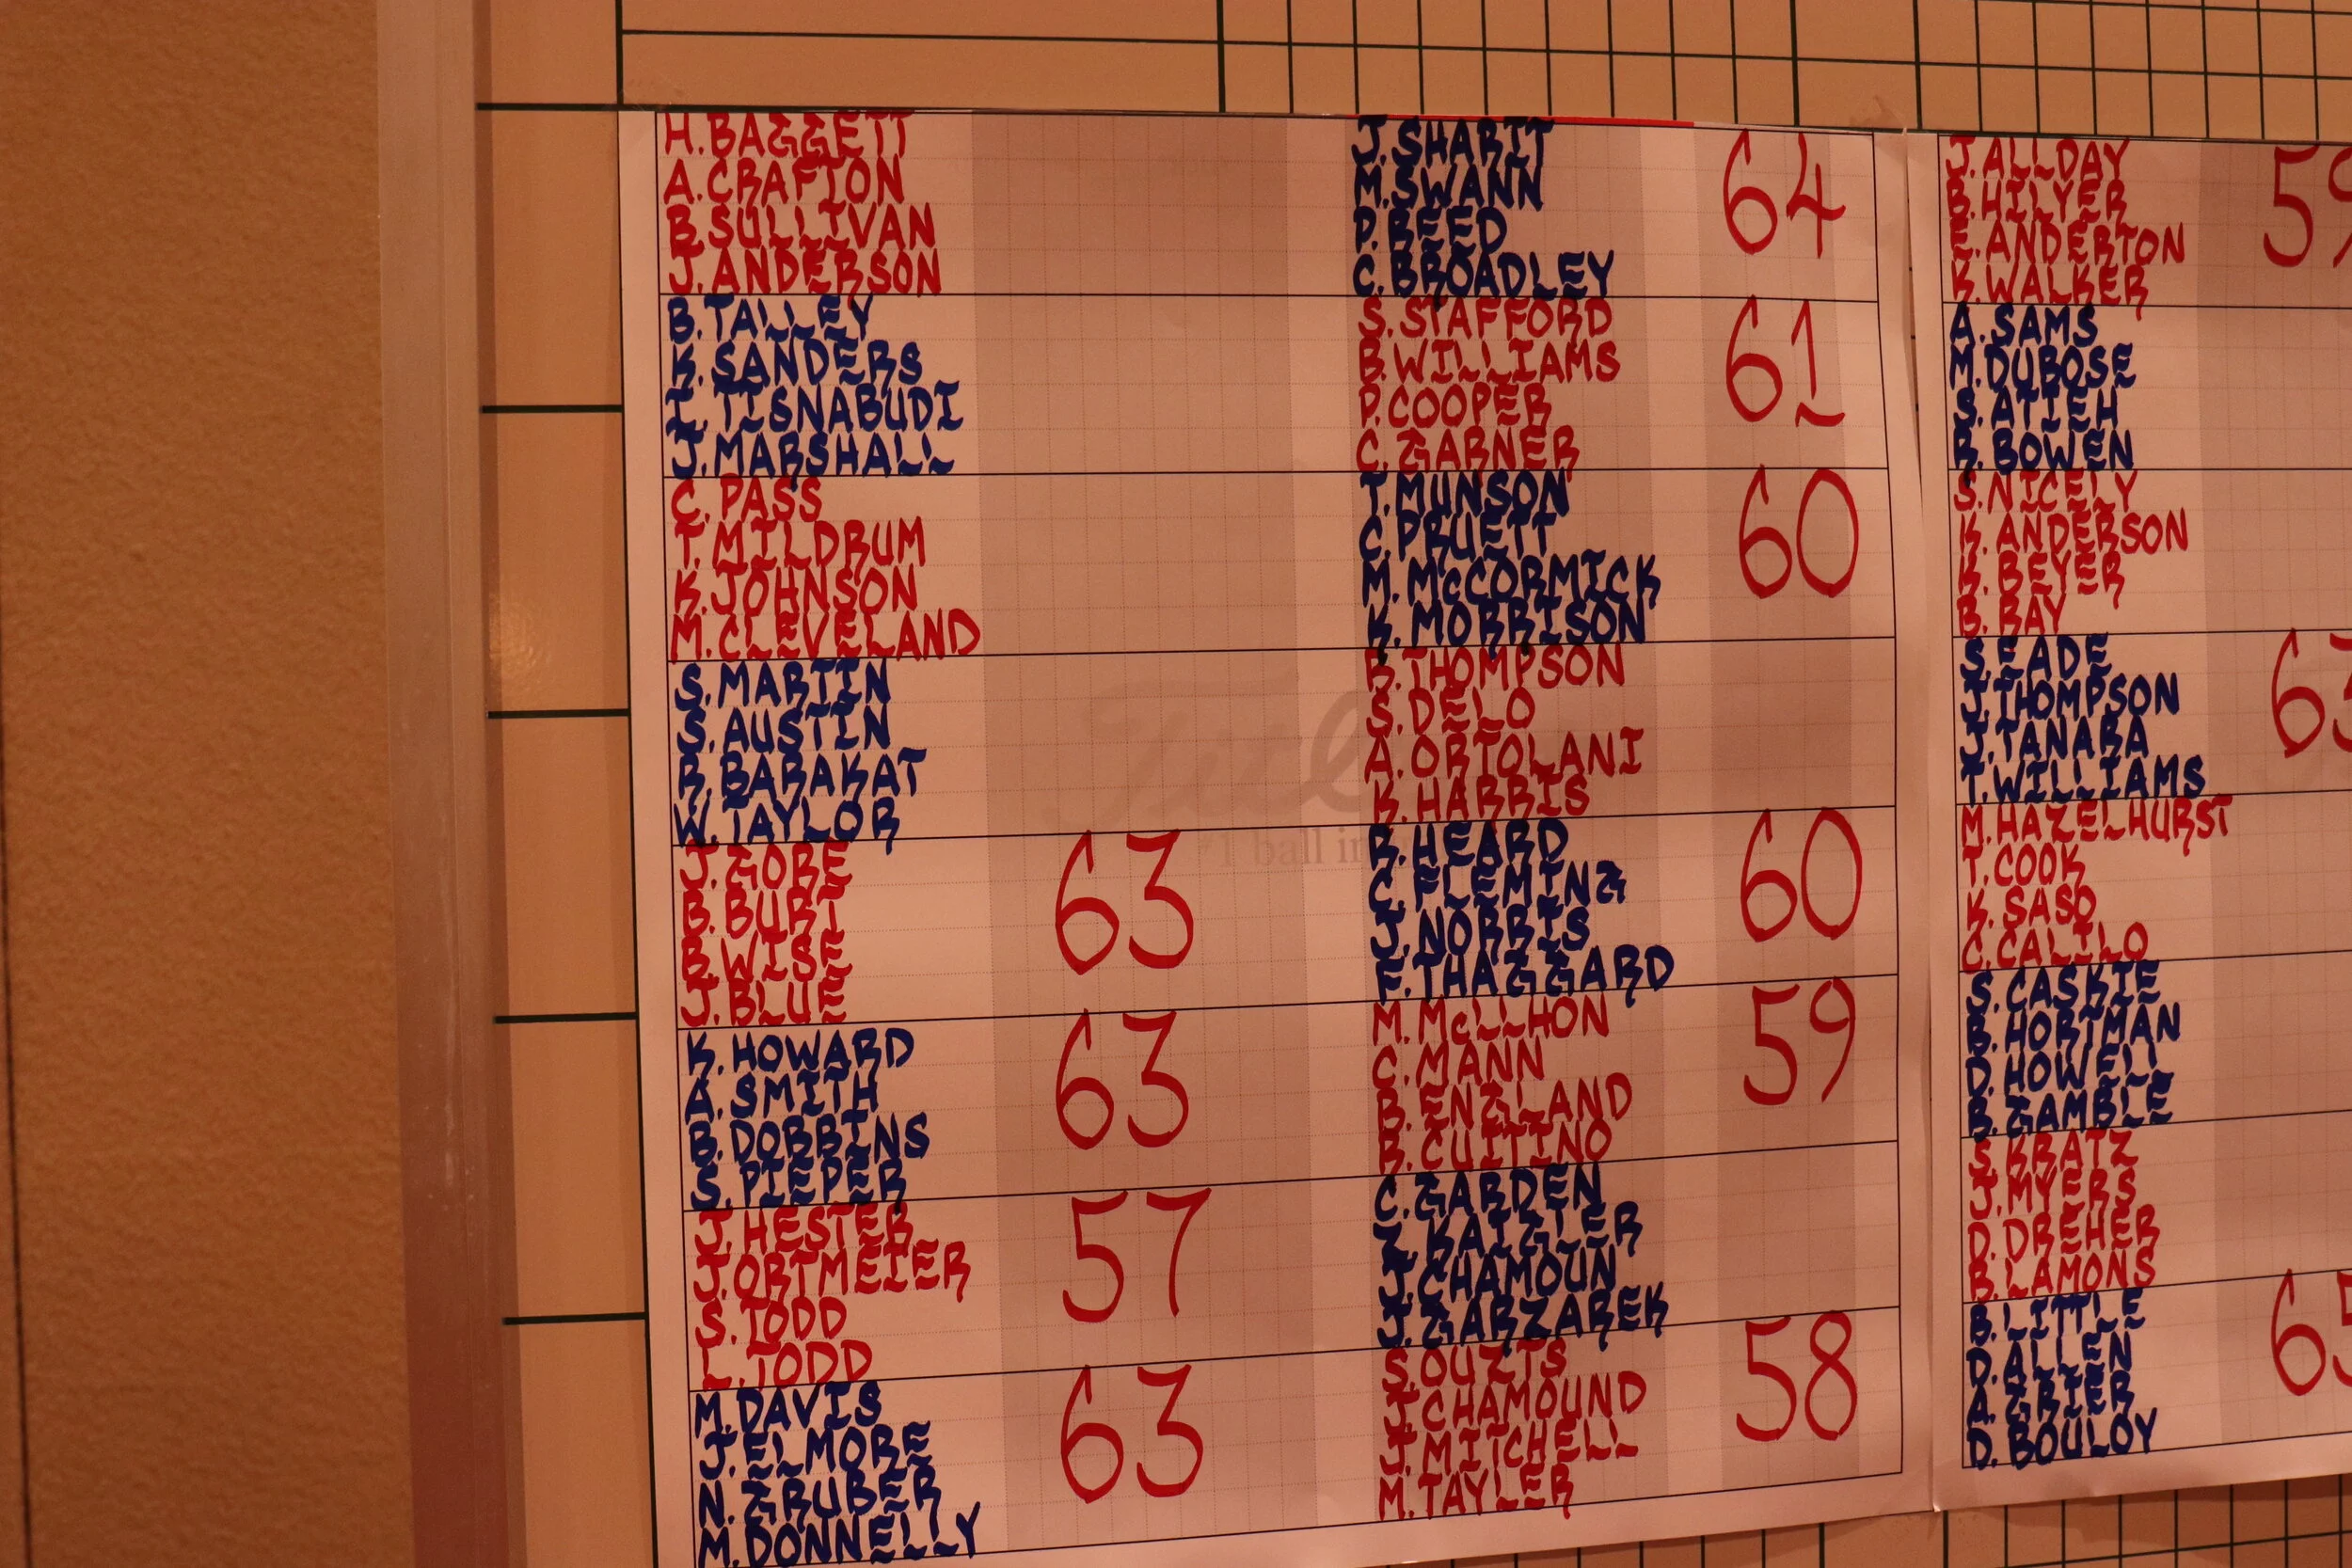 H. BAGGETT
A. CRAFTON
B. SULLIVAN
J. ANDERSON
B. TALLEY
K. SANDERS
I. TISNABUDI
J. MARSHALL
C. PASS
T. MILDRUM
K. JOHNSON
M. CLEVELAND
S. MARTIN
S. AUSTIN
R. BARAKAT
W. TAYLOR
J. GORE
B. BURT
B. WISE
J. BLUE
63
K. HOWARD
A. SMITH
B. DOBBINS
S. PIEPER
63
J. HESTER
J. ORTMEIER
S. TODD
L. TODD
57
M. DAVIS
J. ELMORE
N. GRUBER
M. DONNELLY
63
J. SHARIT
M. SWANN
P. REED
C. BROADLEY
64
S. STAFFORD
B. WILLIAMS
P. COOPER
C. GARNER
61
T. MUNSON
C. PRUETT
M. McCORMICK
K. MORRISON
60
B. THOMPSON
S. DELO
A. ORTOLANI
K. HARRIS
R. HEARD
C. FLEMING
J. NORRIS
F. THAGGARD
60
M. McLLHON
C. MANN
B. ENGLAND
R. CUITINO
59
C. GARDEN
Z. KAIGLER
J. CHAMOUN
J. GARZAREK
S. OUZTS
J. CHAMOUND
J. MITCHELL
M. TAYLER
58
#1 ball in
J. ALLDAY
B. HILYER
E. ANDERTON
K. WALKER
59
A. SAMS
M. DUBOSE
S. ATIEH
R. BOWEN
S. NICELY
K. ANDERSON
K. BEYER
B. RAY
S. EADE
J. THOMPSON
J. TANARA
T. WILLIAMS
63
M. HAZELHURST
T. COOK
K. SASO
C. CALILO
S. CASKIE
B. HORTMAN
D. HOWELL
B. GAMBLE
S. KRATZ
J. MYERS
D. DREHER
B. LAMONS
B. LITTLE
D. ALLEN
A. GRIER
D. BOULOY
65